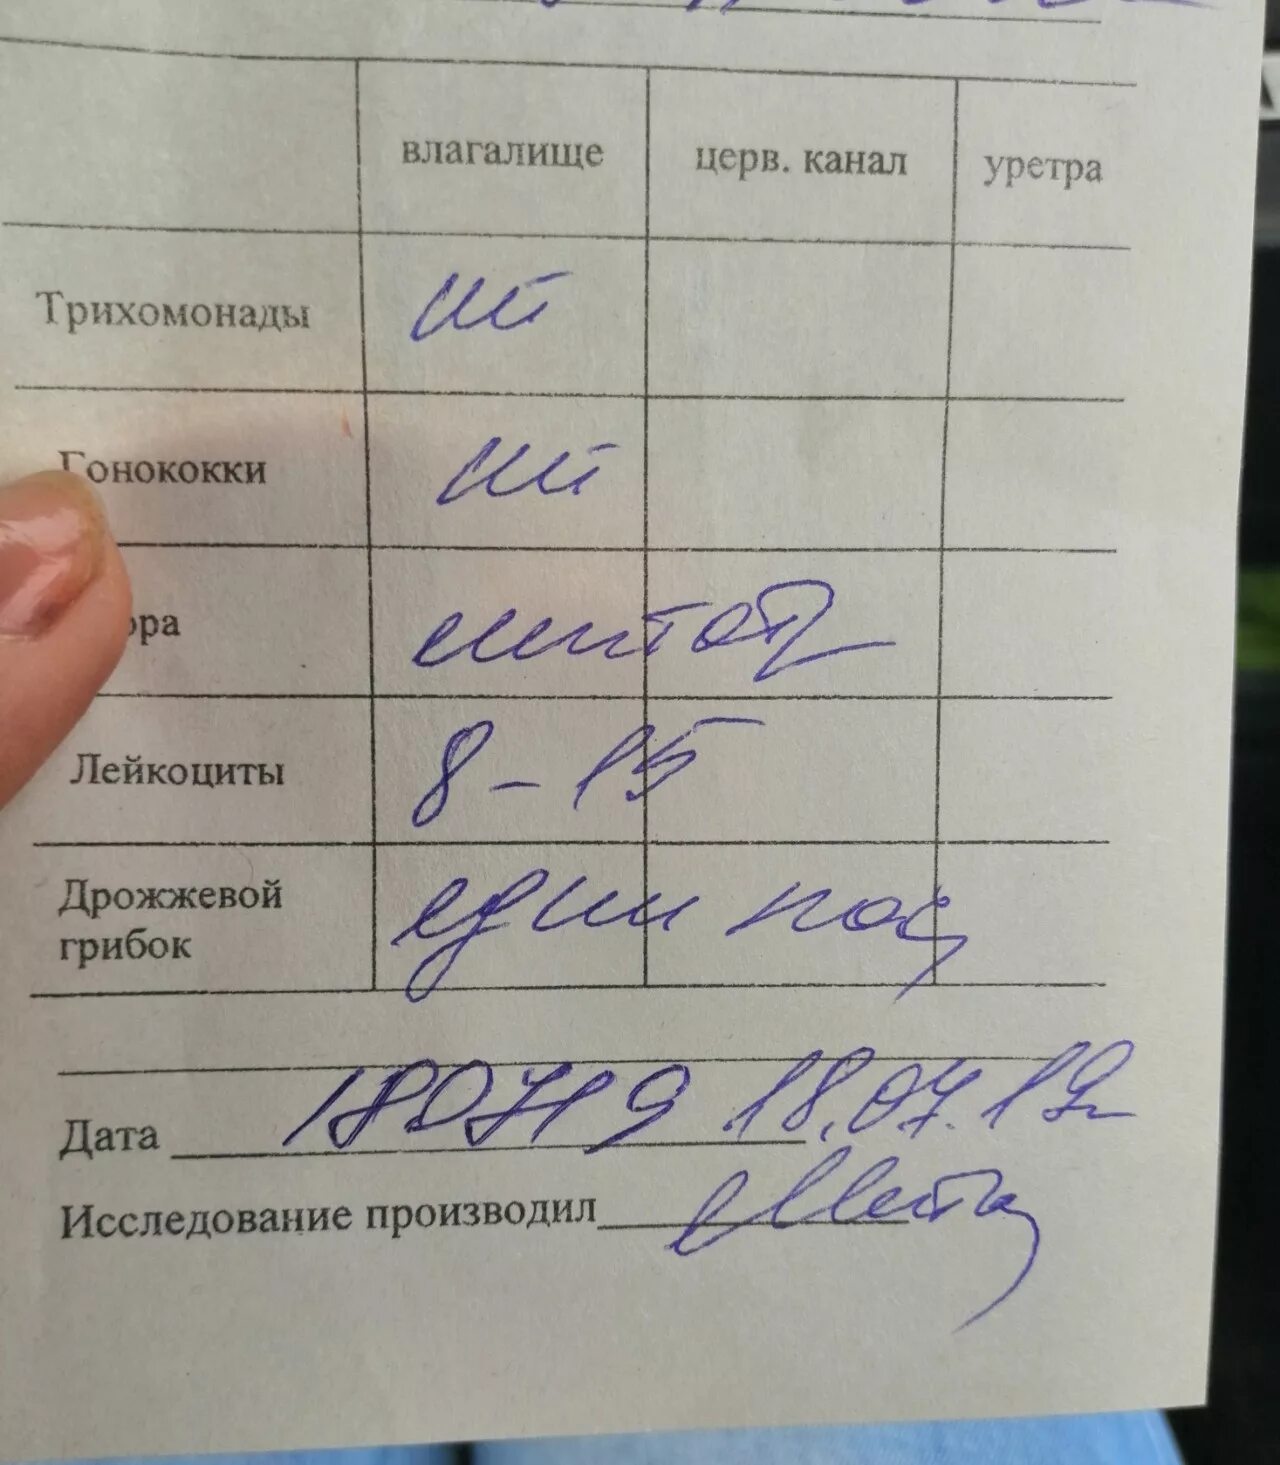 влагалище церв. канал уретра
Трихомонады нет
Гонококки нет
ора
Лейкоциты 8 - 15
Дрожжевой
грибок един поч
Дата 180719 18.07.19
Исследование производил